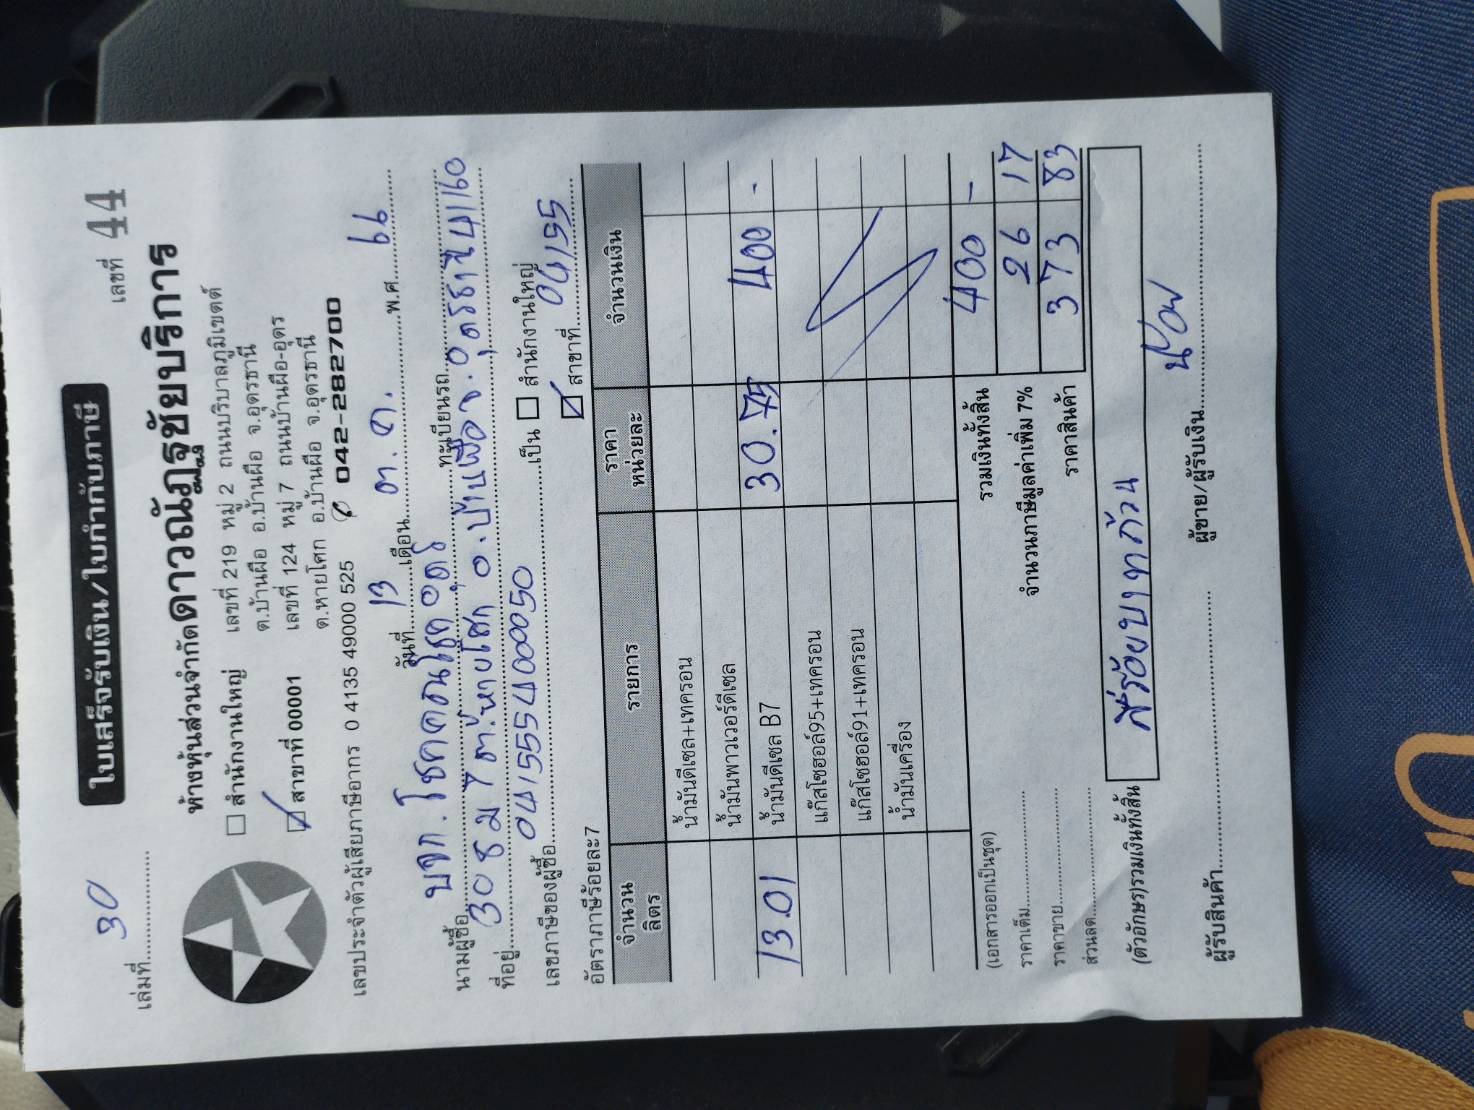 เล่มที่ 30
ใบเสร็จรับเงิน/ใบกำกับภาษี
เลขที่ 44
ห้างหุ้นส่วนจำกัดดาวณัฏฐชัยบริการ
☐ สำนักงานใหญ่ เลขที่ 219 หมู่ 2 ถนนบริบาลภูมิเขตต์
ต.บ้านผือ อ.บ้านผือ จ.อุดรธานี
☑ สาขาที่ 00001 เลขที่ 124 หมู่ 7 ถนนบ้านผือ-อุดร
ต.หายโศก อ.บ้านผือ จ.อุดรธานี
เลขประจำตัวผู้เสียภาษีอากร 0 4135 49000 525 042-282700
วันที่ 13 เดือน ต.ค. พ.ศ. 66
นามผู้ซื้อ บจก. โชคคูณโชค อุดร ทะเบียนรถ
ที่อยู่ 308 ม 7 ต.หายโศก อ.บ้านผือ จ.อุดรธานี 41160
เลขภาษีของผู้ซื้อ 0415554000050 เป็น ☐ สำนักงานใหญ่
อัตราภาษีร้อยละ7 ☑ สาขาที่ 04155
จำนวนลิตร รายการ ราคาหน่วยละ จำนวนเงิน
น้ำมันดีเซล+เทครอน
น้ำมันพาวเวอร์ดีเซล
13.01 น้ำมันดีเซล B7 30.75 400 -
แก๊สโซฮอล์95+เทครอน
แก๊สโซฮอล์91+เทครอน
น้ำมันเครื่อง
(เอกสารออกเป็นชุด) รวมเงินทั้งสิ้น 400 -
ราคาเต็ม จำนวนภาษีมูลค่าเพิ่ม 7% 26 17
ราคาขาย ราคาสินค้า 373 83
ส่วนลด
(ตัวอักษร)รวมเงินทั้งสิ้น สี่ร้อยบาทถ้วน
ผู้รับสินค้า ผู้ขาย/ผู้รับเงิน